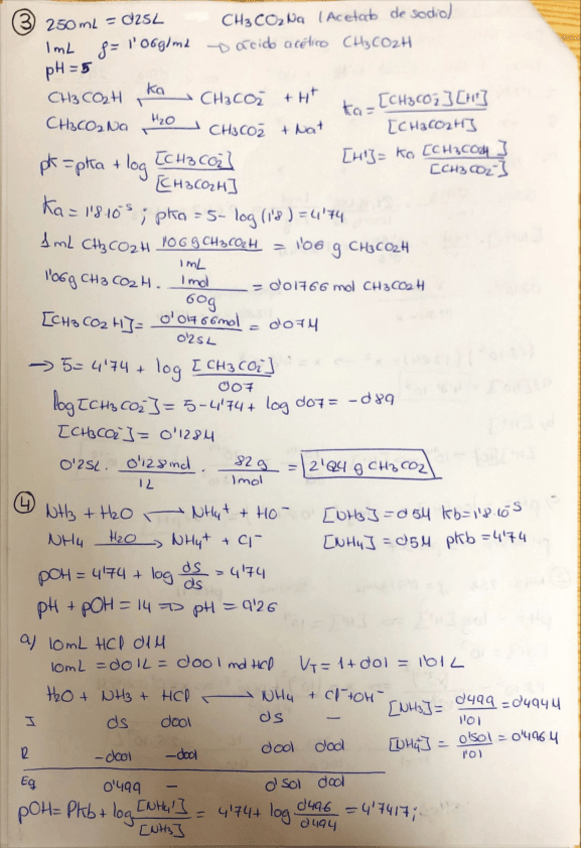 ③ 250mL = 0'25L CH3CO2Na (Acetato de sodio)
1mL ρ = 1'06g/mL → ácido acético CH3CO2H
pH = 5
CH3CO2H ⇄ Ka CH3CO2⁻ + H⁺ Ka = [CH3CO2⁻][H⁺] / [CH3CO2H]
CH3CO2Na ⇄ H2O CH3CO2⁻ + Na⁺
pH = pKa + log [CH3CO2⁻] / [CH3CO2H] [H⁺] = Ka [CH3CO2H] / [CH3CO2⁻]
Ka = 1'8·10⁻⁵ ; pKa = 5 - log(1'8) = 4'74
1mL CH3CO2H 1'06g CH3CO2H / 1mL = 1'06 g CH3CO2H
1'06g CH3CO2H · 1mol / 60g = 0'01766 mol CH3CO2H
[CH3CO2H] = 0'01766mol / 0'25L = 0'07M
→ 5 = 4'74 + log [CH3CO2⁻] / 0'07
log [CH3CO2⁻] = 5 - 4'74 + log 0'07 = -0'89
[CH3CO2⁻] = 0'128M
0'25L · 0'128mol / 1L · 82g / 1mol = 2'624 g CH3CO2
④ NH3 + H2O ⇄ NH4⁺ + HO⁻ [NH3] = 0'5M Kb = 1'8·10⁻⁵
NH4 → H2O NH4⁺ + Cl⁻ [NH4] = 0'5M pKb = 4'74
pOH = 4'74 + log 0'5 / 0'5 = 4'74
pH + pOH = 14 => pH = 9'26
a) 10mL HCl 0'1M
10mL = 0'01L = 0'001 mol HCl VT = 1 + 0'01 = 1'01 L
H2O + NH3 + HCl ⇄ NH4 + Cl⁻ + OH⁻ [NH3] = 0'499 / 1'01 = 0'494M
I 0'5 0'001 0'5 —
R -0'001 -0'001 0'001 0'001 [NH4⁺] = 0'501 / 1'01 = 0'496M
Eq 0'499 — 0'501 0'001
pOH = PKb + log [NH4⁺] / [NH3] = 4'74 + log 0'496 / 0'494 = 4'7417;